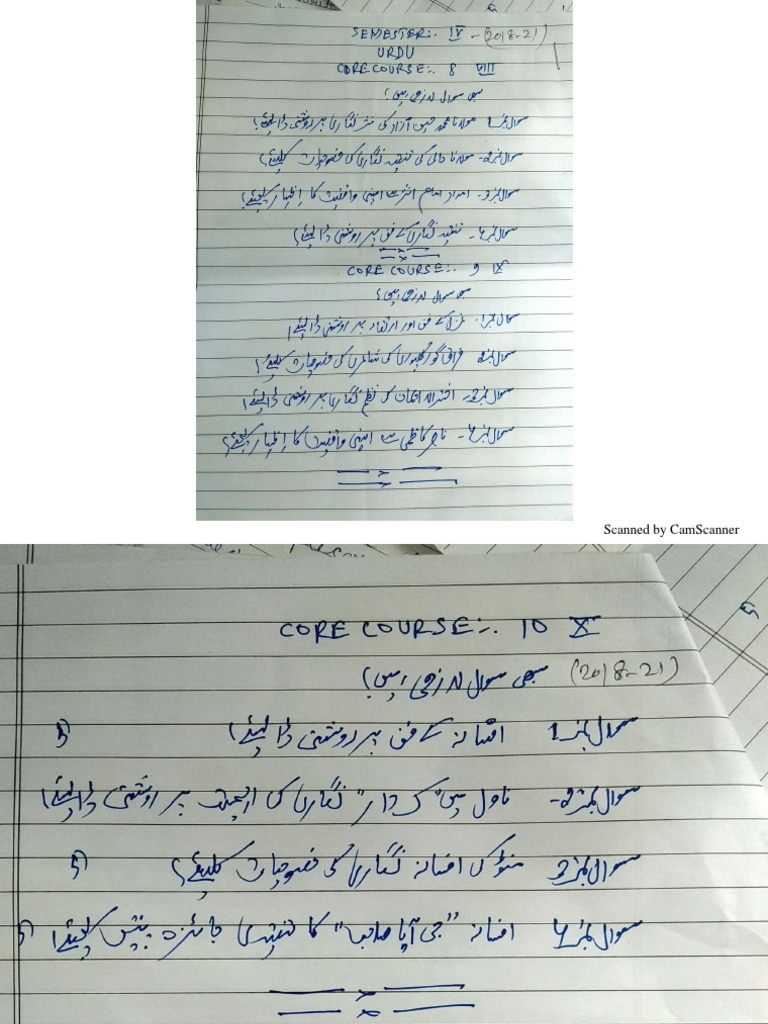 SEMESTER:. IV - (2018-21)
URDU
CORE COURSE:. 8 VIII
سبھی سوال لازمی ہیں؟
سوال نمبر1 مولانا محمد حسین آزاد کی نثر نگاری پر روشنی ڈالیئے؟
سوال نمبر2- مولانا حالی کی تنقید نگاری کی خصوصیات لکھیئے؟
سوال نمبر3- امداد امام اثر سے اپنی واقفیت کا اظہار کیجئے؟
سوال نمبر4- تنقید نگاری کے فن پر روشنی ڈالیئے؟
CORE COURSE:. 9 IX
سبھی سوال لازمی ہیں؟
سوال نمبر1 غزل کے فن اور ارتقاء پر روشنی ڈالیئے؟
سوال نمبر2 فراق گورکھپوری کی شاعری کی خصوصیات لکھیئے؟
سوال نمبر3- اختر الایمان کی نظم نگاری پر روشنی ڈالیئے؟
سوال نمبر4- ناصر کاظمی سے اپنی واقفیت کا اظہار کیجئے؟
Scanned by CamScanner
CORE COURSE:-. 10 X
سبھی سوال لازمی ہیں؟ (2018-21)
سوال نمبر1 افسانہ کے فن پر روشنی ڈالیئے؟
سوال نمبر2- ناول میں "کردار" نگاری کی اہمیت پر روشنی ڈالیئے؟
سوال نمبر3 منٹو کی افسانہ نگاری کی خصوصیات لکھیئے؟
سوال نمبر4 افسانہ "جی آیا صاحب" کا تنقیدی جائزہ پیش کیجئے؟